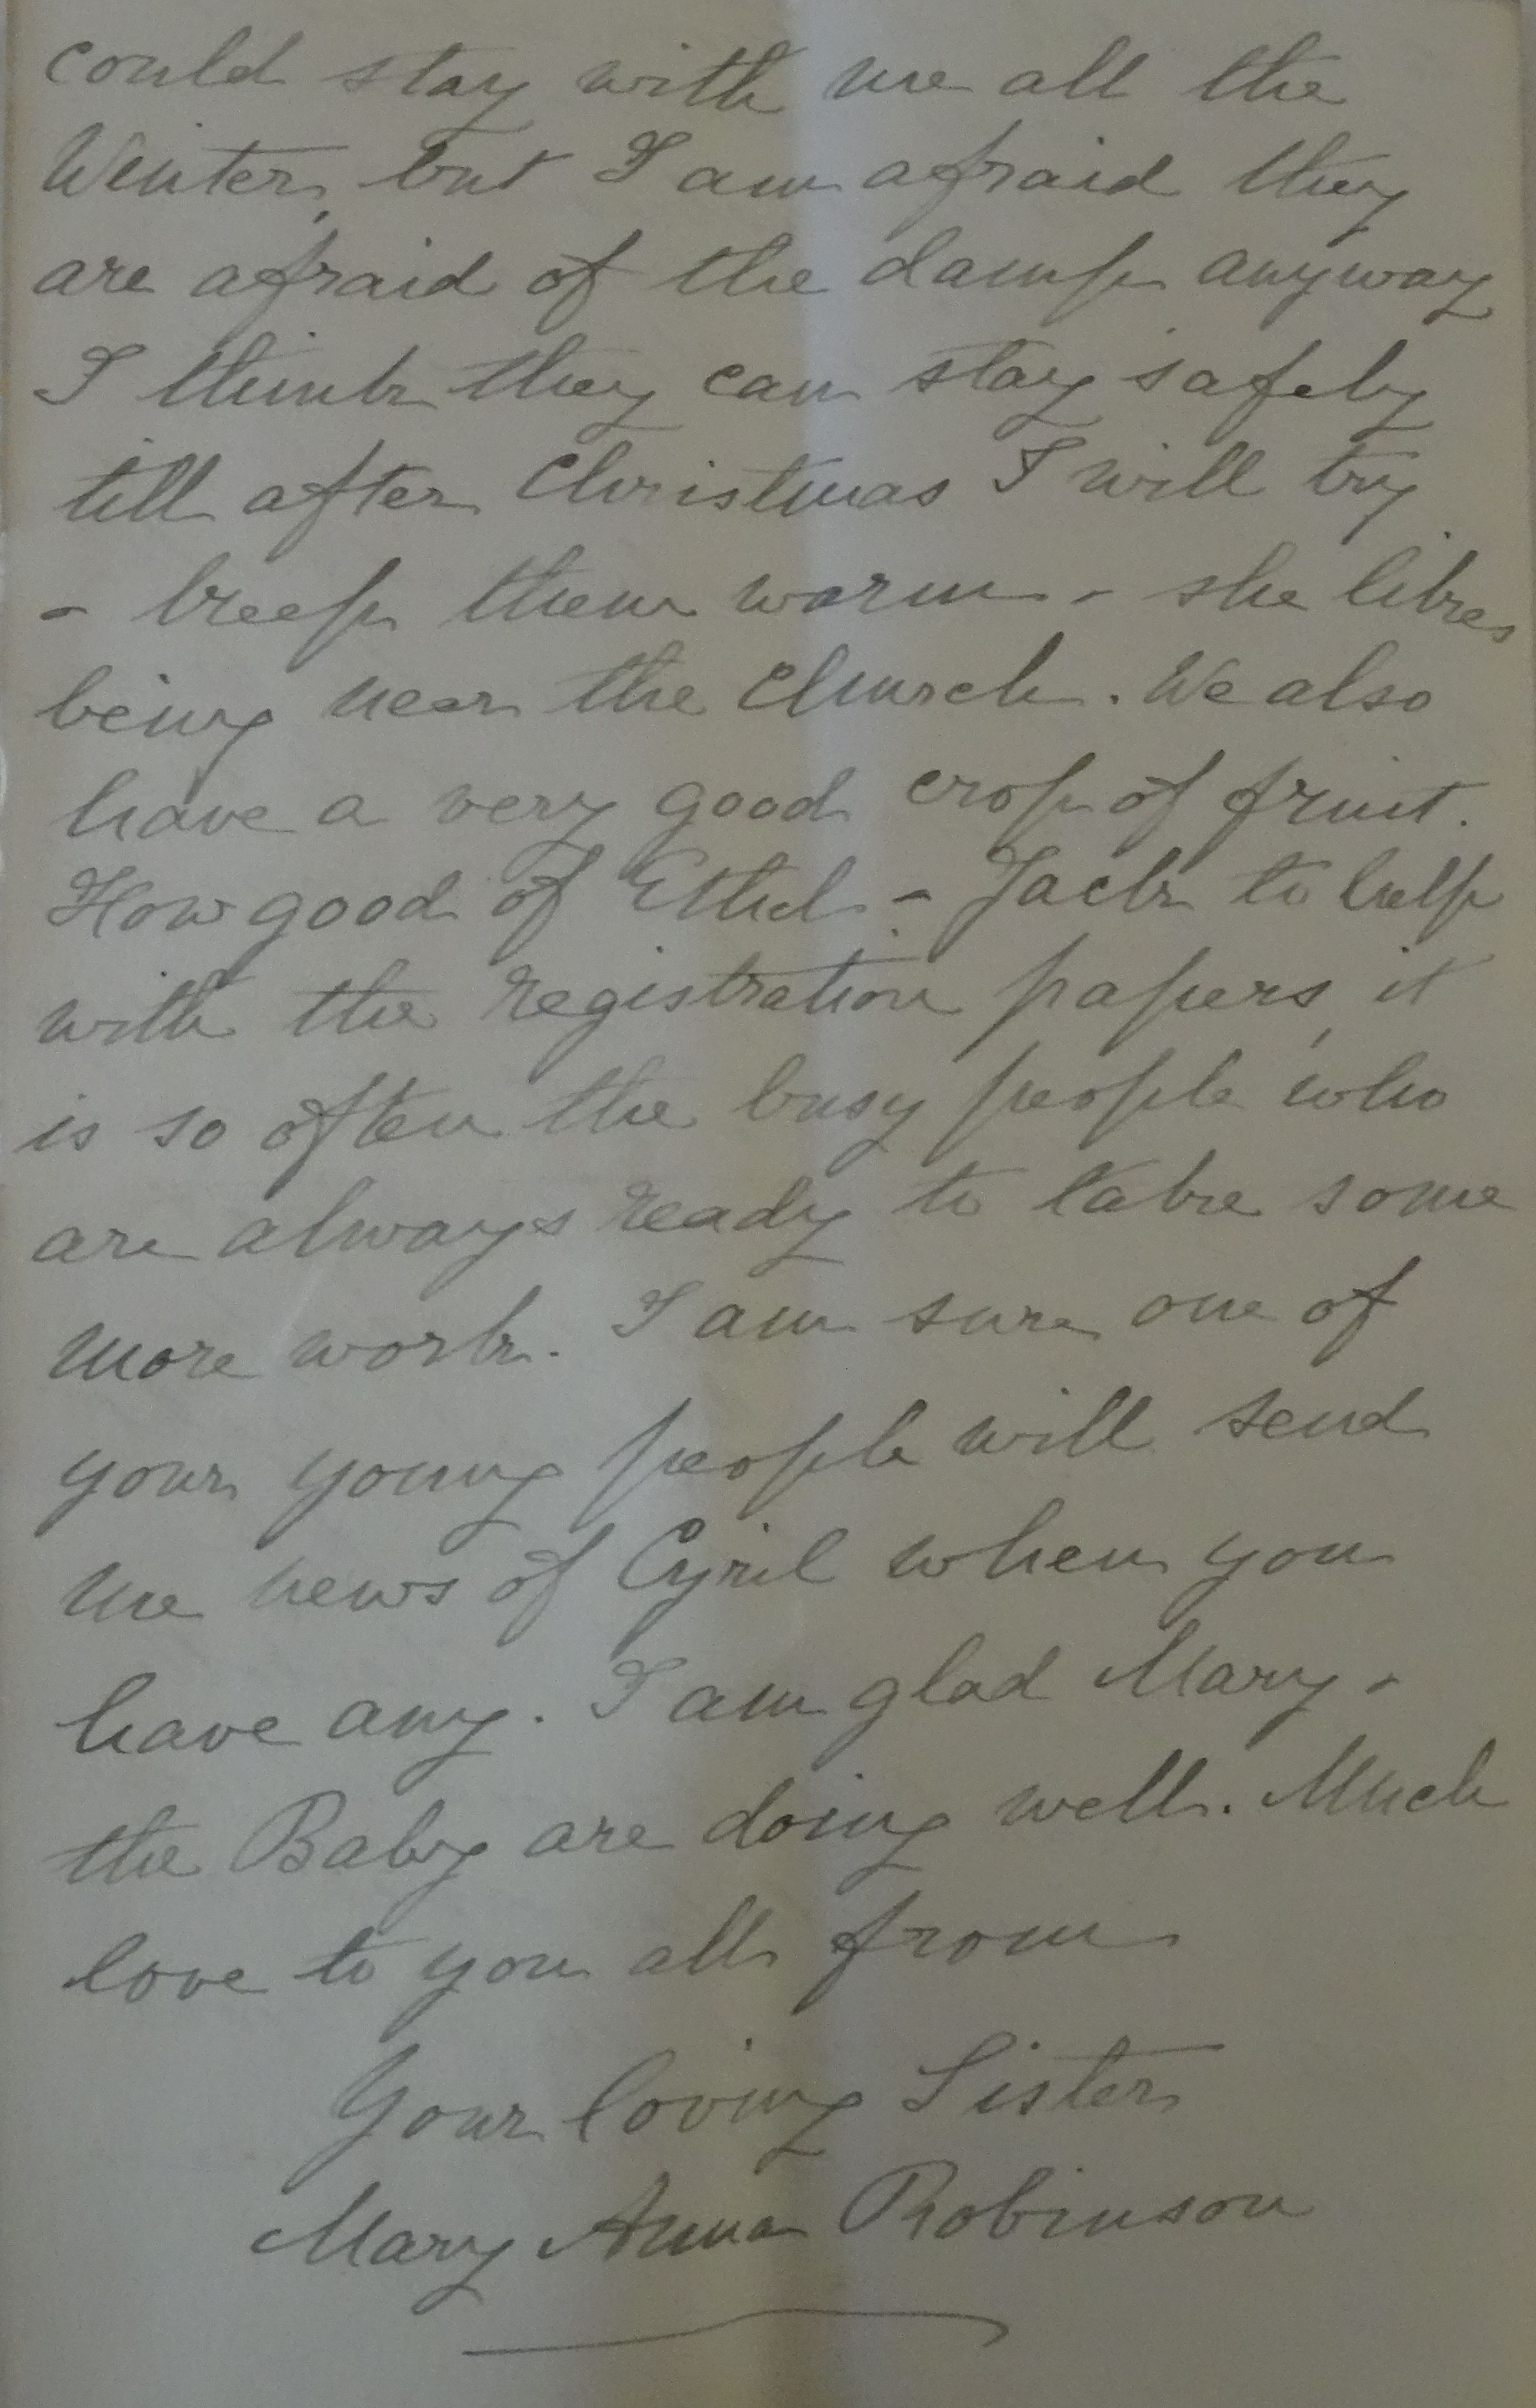 could stay with me all the
Winter, but I am afraid they
are afraid of the damp anyway
I think they can stay safely
till after Christmas I will try
- keep them warm - she likes
being near the Church. We also
have a very good crop of fruit.
How good of Ethel - Jack to help
with the registration papers, it
is so often the busy people who
are always ready to take some
more work. I am sure one of
your young people will send
me news of Cyril when you
have any. I am glad Mary -
the Baby are doing well. Much
love to you all from
Your loving Sister
Mary Anna Robinson